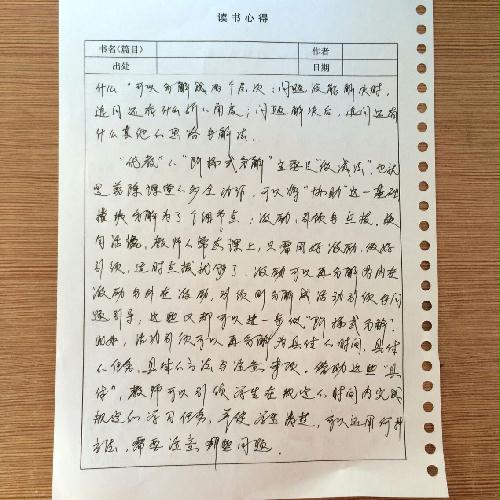 读书心得
书名(篇目) 作者
出处 日期
什么”可以分解成两个层次：问题没能解决时，
追问还有什么别的角度；问题解决后，追问还有
什么其他的思路与解法。
“优教”的“阶梯式分解”主要是“做减法”，也就
是剪除课堂的多余动作，可以将“协助”这一基础
模块分解为了个细节点：激励、引领与点拨。换
句话说，教师的常态课上，只需用好激励，做好
引领，适时点拨就够了。激励可以再分解为内在
激励与外在激励，引领则分解成活动引领与问
题引导，这些又都可以进一步做“阶梯式分解”。
比如，活动引领可以再分解为具体的时间、具体
的任务、具体的方法与注意事项。借助这些“具
体”，教师可以引领学生在规定的时间内完成
规定的学习任务，并使学生清楚，可以运用何种
方法，需要注意哪些问题。